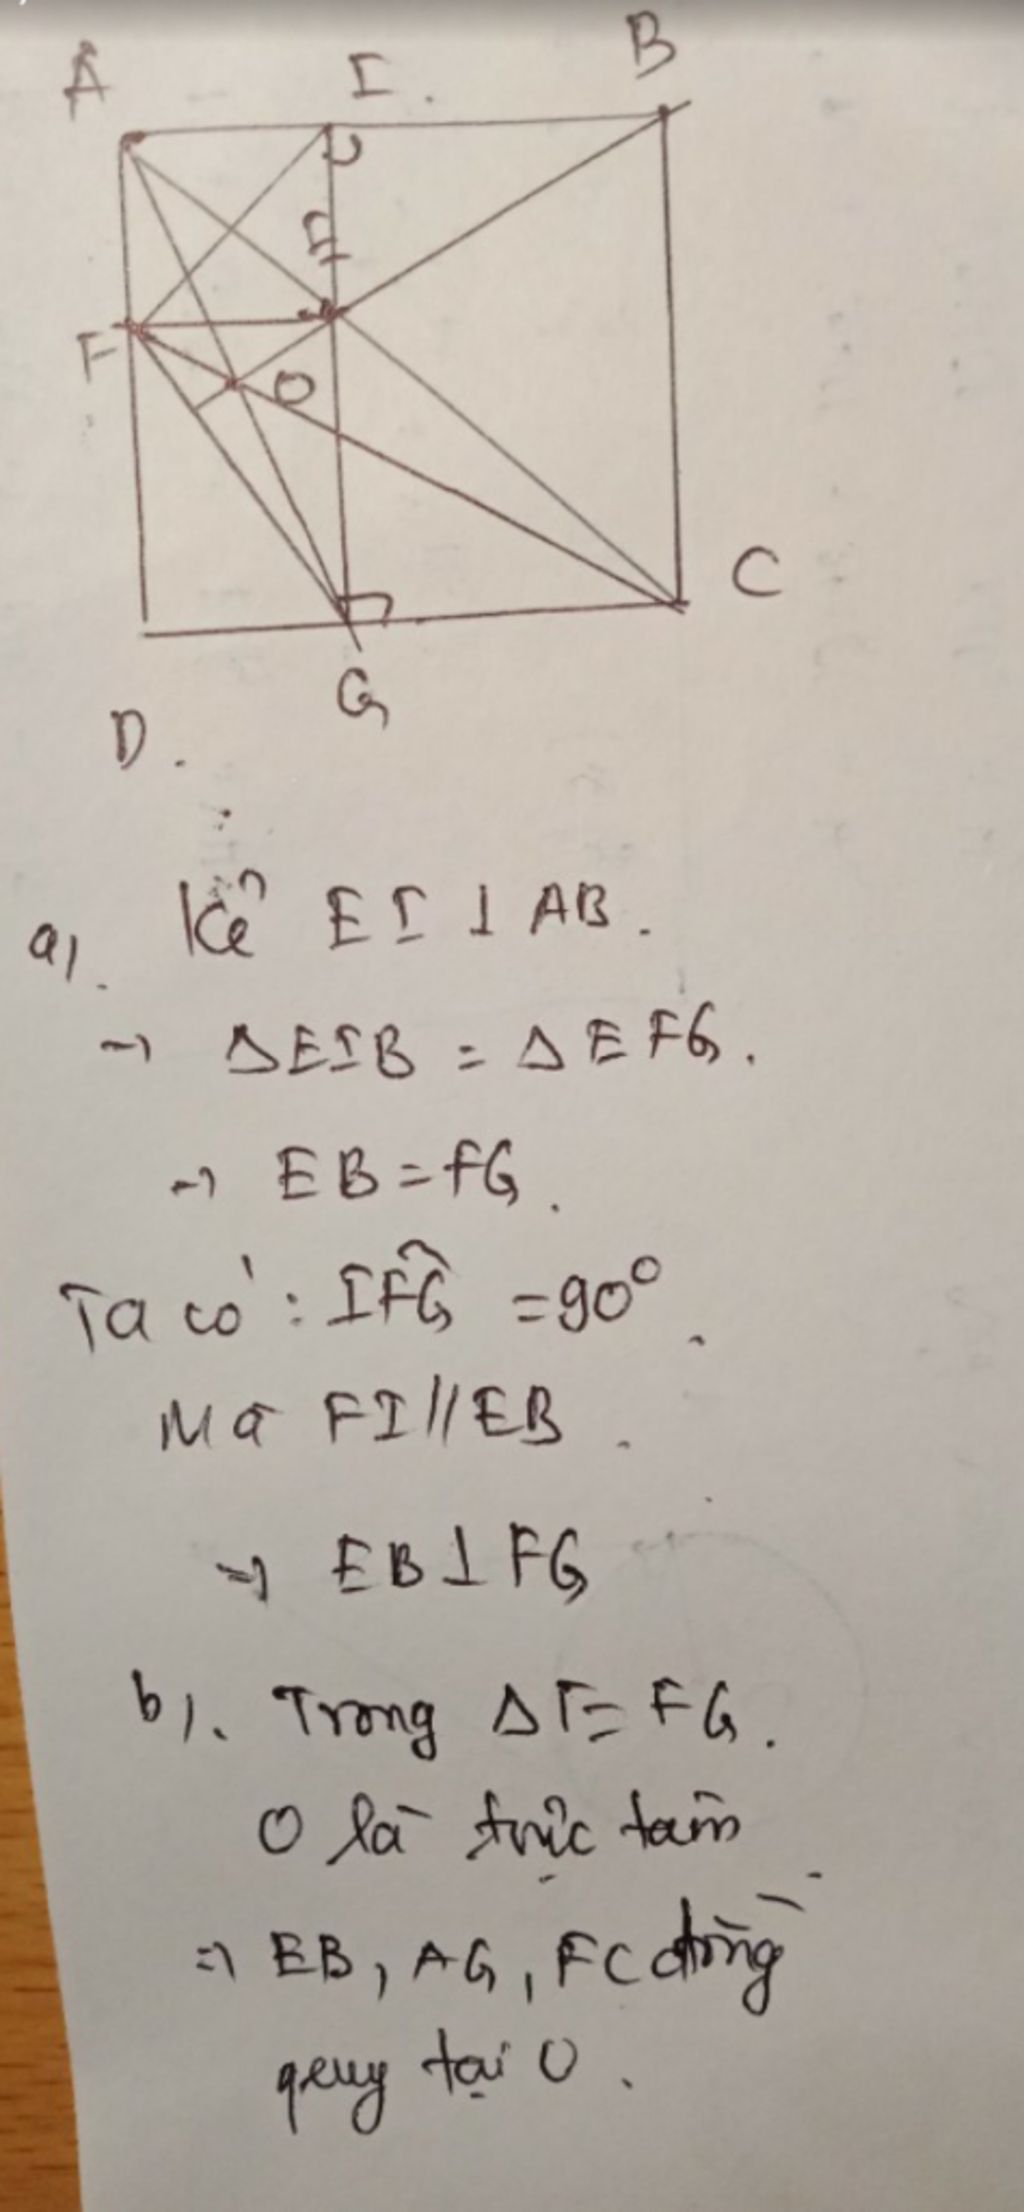 A I. B
E
F O
C
G
D.
a). Kẻ EI ⊥ AB.
→ ΔEIB = ΔEFG.
→ EB = FG.
Ta có: IFG = 90°.
Mà FI // EB.
⇒ EB ⊥ FG
b). Trong ΔEFG.
O là trực tâm
⇒ EB, AG, FC đồng
quy tại O.